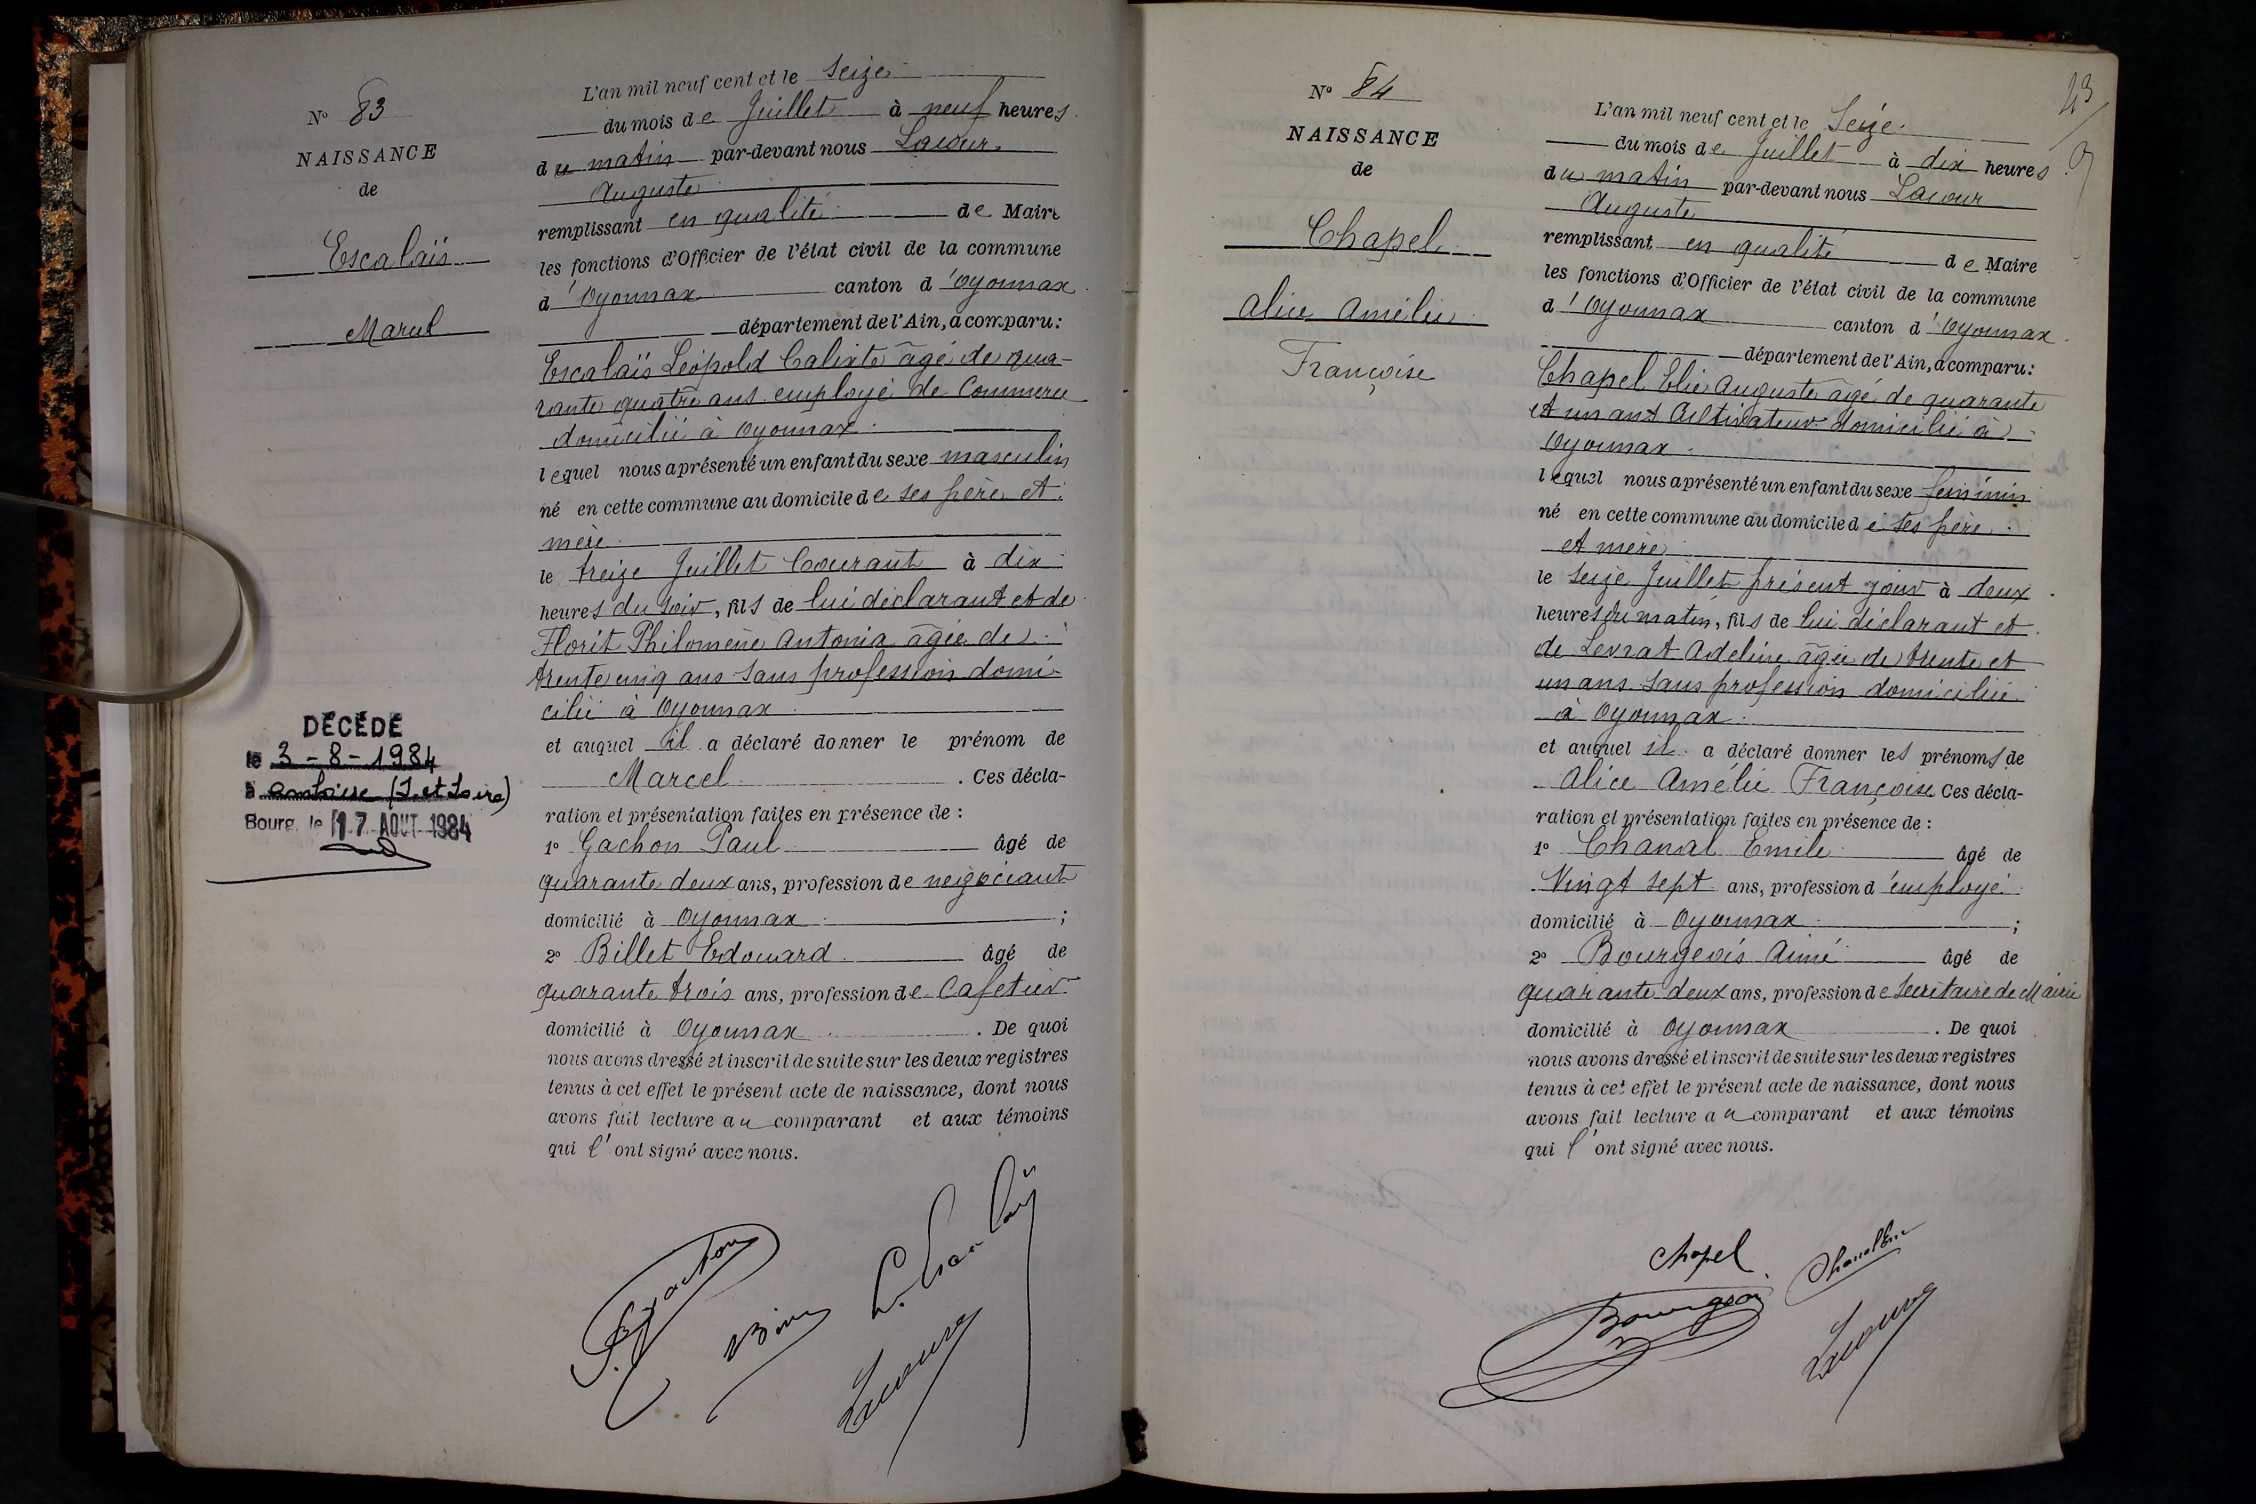 N° 83
NAISSANCE
de
Escalaïs
Marcel
DÉCÉDÉ
le 3-8-1984
à Amboise (I. et Loire)
Bourg, le 17 AOUT 1984
L'an mil neuf cent et le seize
du mois de Juillet à neuf heures
du matin par-devant nous Lacour
Auguste
remplissant en qualité de Maire
les fonctions d'Officier de l'état civil de la commune
d'Oyonnax canton d'Oyonnax
département de l'Ain, a comparu:
Escalaïs Léopold Calixte âgé de qua-
rante quatre ans employé de Commerce
domicilié à Oyonnax
lequel nous a présenté un enfant du sexe masculin
né en cette commune au domicile de ses père et
mère
le treize Juillet Courant à dix
heures du soir, fils de lui déclarant et de
Florit Philomène Antonia âgée de
trente cinq ans sans profession domi-
ciliée à Oyonnax
et auquel il a déclaré donner le prénom de
Marcel. Ces décla-
ration et présentation faites en présence de :
1° Gachon Paul âgé de
quarante deux ans, profession de négociant
domicilié à Oyonnax ;
2° Billet Edouard âgé de
quarante trois ans, profession de Cafetier
domicilié à Oyonnax. De quoi
nous avons dressé et inscrit de suite sur les deux registres
tenus à cet effet le présent acte de naissance, dont nous
avons fait lecture au comparant et aux témoins
qui l'ont signé avec nous.
P. Gachon
L. Escalaïs
Lacour
43
N° 84
NAISSANCE
de
Chapel
Alice Amélie
Françoise
L'an mil neuf cent et le Seize
du mois de Juillet à dix heures
du matin par-devant nous Lacour
Auguste
remplissant en qualité de Maire
les fonctions d'Officier de l'état civil de la commune
d'Oyonnax canton d'Oyonnax
département de l'Ain, a comparu:
Chapel Elie Auguste âgé de quarante
et un ans Cultivateur domicilié à
Oyonnax
lequel nous a présenté un enfant du sexe féminin
né en cette commune au domicile de ses père
et mère
le seize Juillet présent jour à deux
heures du matin, fils de lui déclarant et
de Levrat Adeline âgée de trente et
un ans sans profession domiciliée
à Oyonnax
et auquel il a déclaré donner les prénoms de
Alice Amélie Françoise Ces décla-
ration et présentation faites en présence de :
1° Chanal Emile âgé de
Vingt sept ans, profession d'employé
domicilié à Oyonnax ;
2° Bourgeois Aimé âgé de
quarante deux ans, profession de Secrétaire de Mairie
domicilié à Oyonnax. De quoi
nous avons dressé et inscrit de suite sur les deux registres
tenus à cet effet le présent acte de naissance, dont nous
avons fait lecture au comparant et aux témoins
qui l'ont signé avec nous.
Chapel
Bourgeois
Lacour